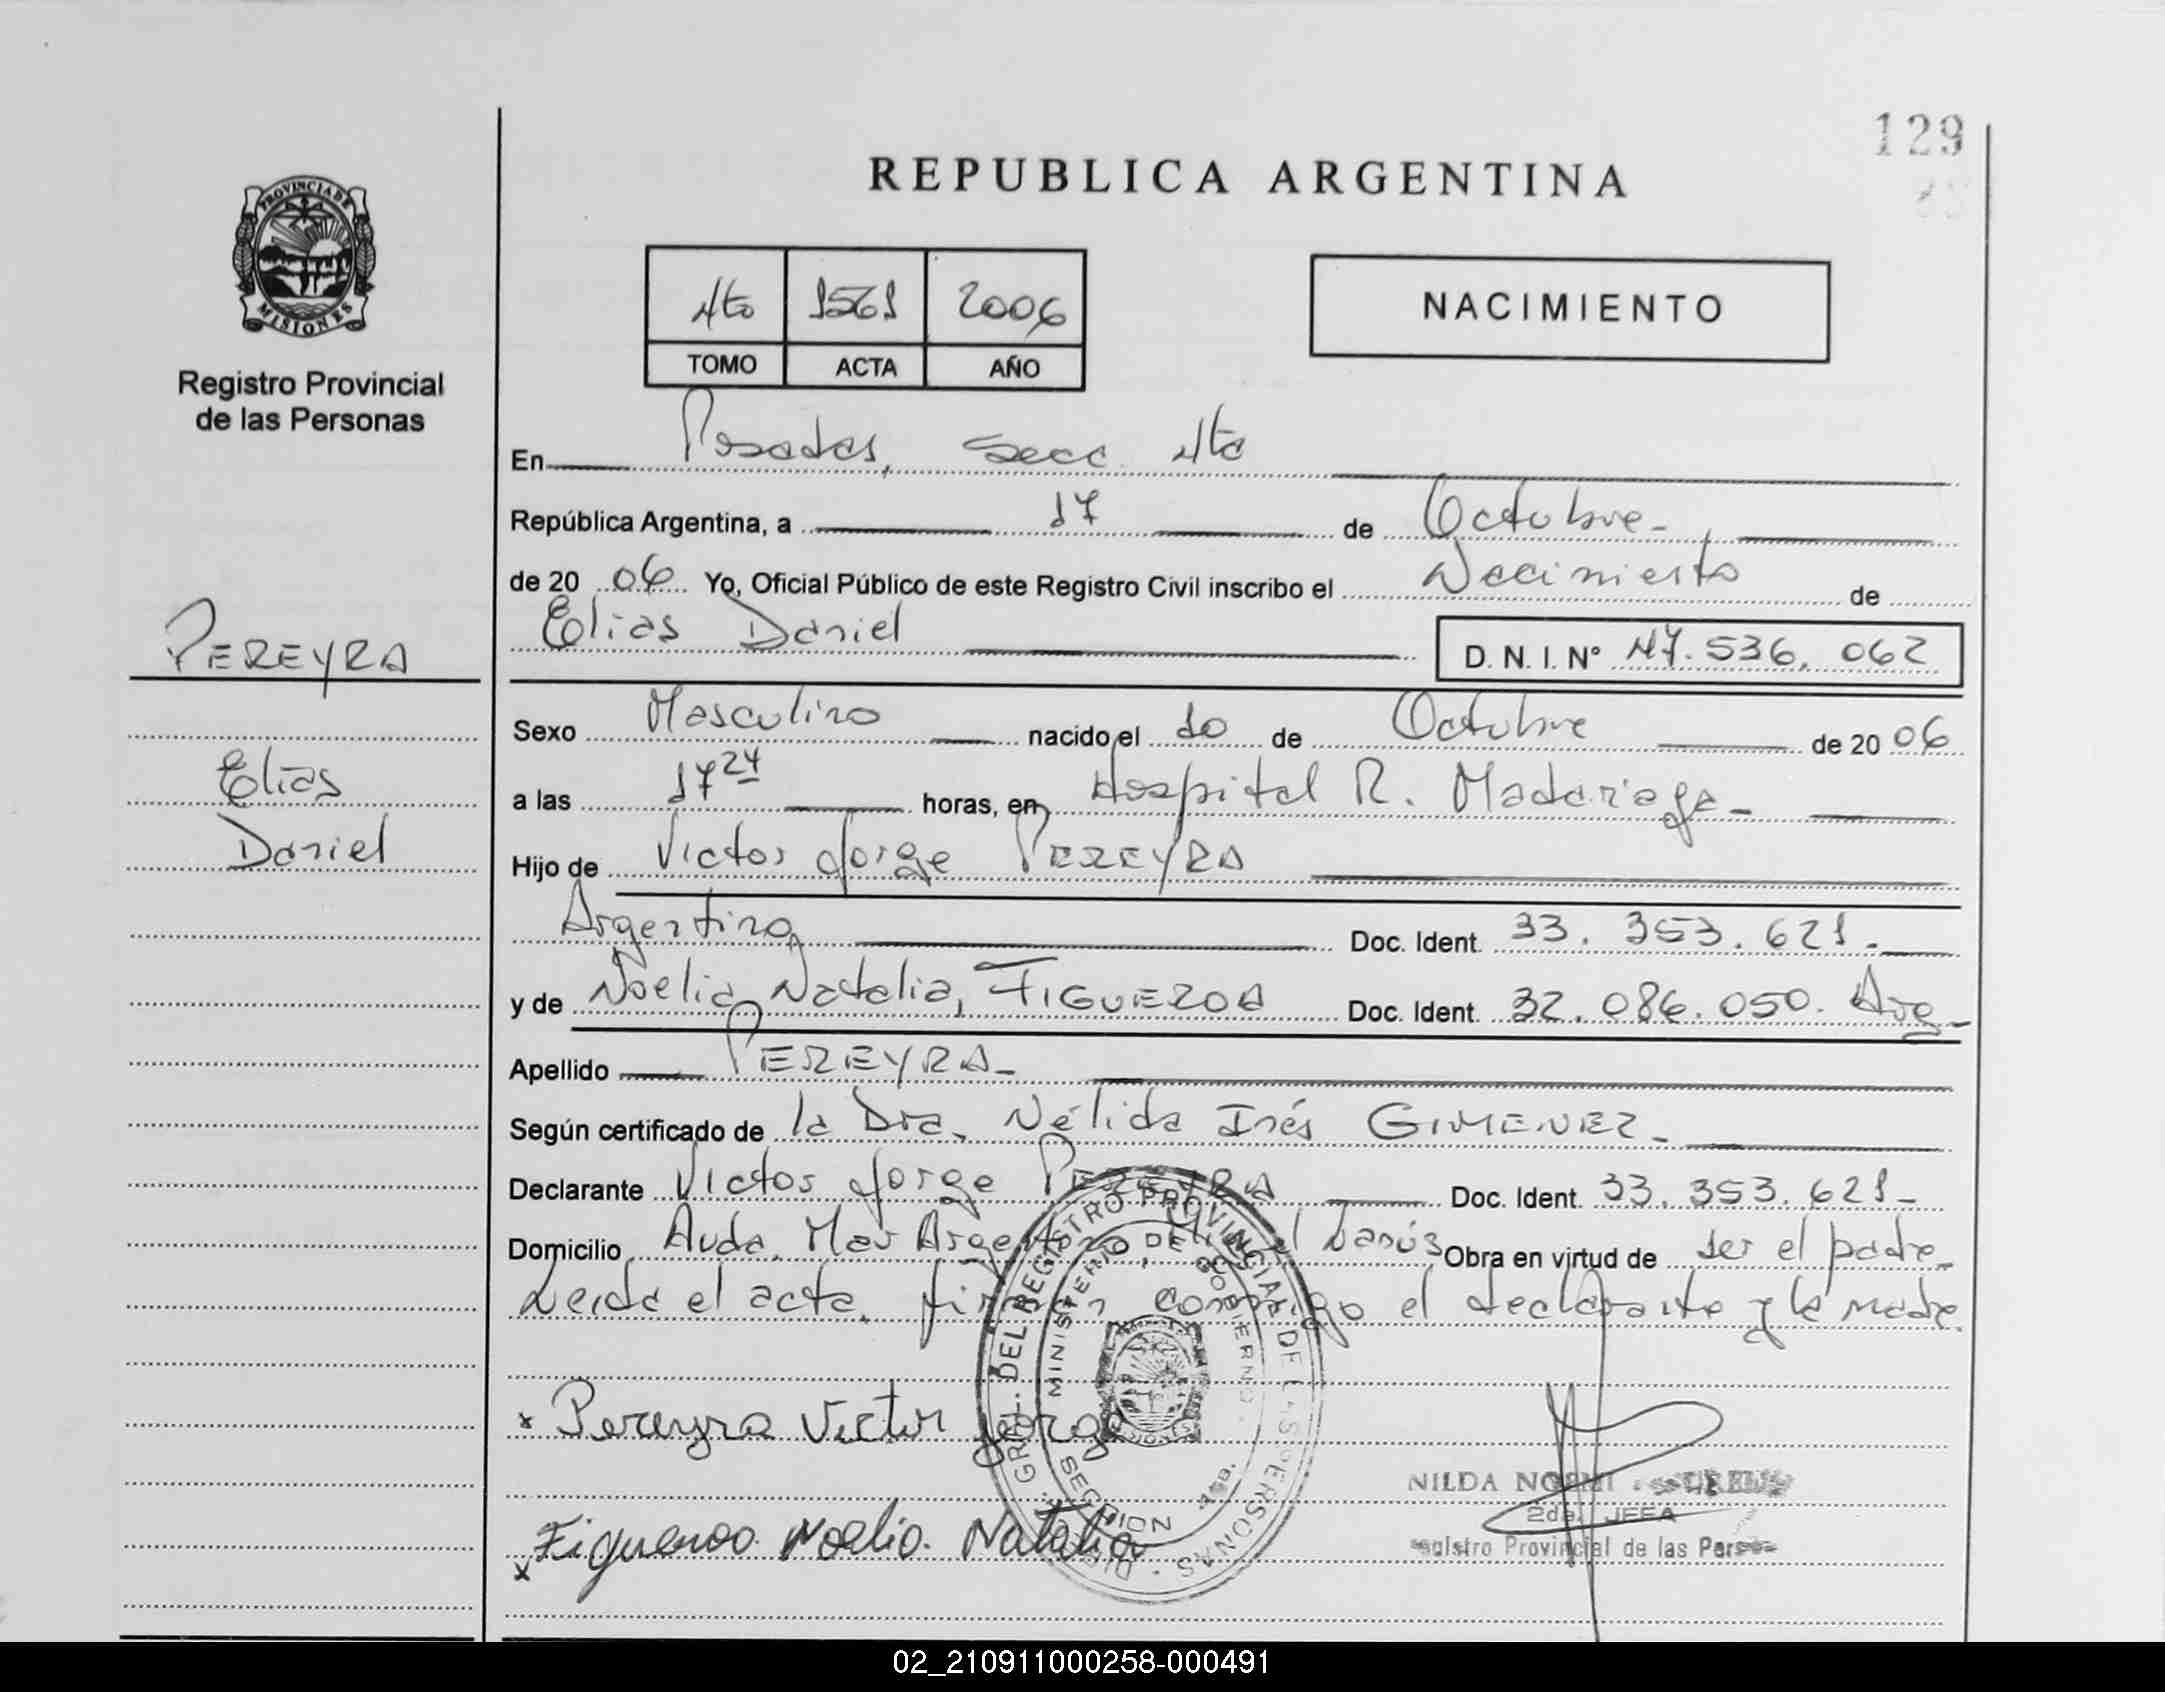 129
REPUBLICA ARGENTINA
PROVINCIA DE
MISIONES
Registro Provincial
de las Personas
4to 1561 2006
TOMO ACTA AÑO
NACIMIENTO
En Posadas, Secc. 4ta
República Argentina, a 17 de Octubre-
de 20 06 Yo, Oficial Público de este Registro Civil inscribo el Nacimiento de
Elias Daniel D. N. I. N° 47.536.062
PEREYRA
Elias
Daniel
Sexo Masculino nacido el 10 de Octubre de 20 06
a las 17 24 horas, en Hospital R. Madariaga-
Hijo de Victor Jorge PEREYRA
Argentino Doc. Ident. 33.353.621.-
y de Noelia Natalia, FIGUEROA Doc. Ident. 32.086.050. Arg-
Apellido PEREYRA-
Según certificado de la Dra. Nélida Inés GIMENEZ-
Declarante Victor Jorge PEREYRA Doc. Ident. 33.353.621-
Domicilio Avda. Mar Argentino, Miguel Lanús Obra en virtud de ser el padre-
Leida el acta, firman conmigo el declarante y la madre.
x Pereyra Victor Jorge
x Figueroa Noelia Natalia
DIR. GRAL. DEL REGISTRO PROVINCIAL DE LAS PERSONAS
MINISTERIO DE GOBIERNO
SECCION
NILDA NOEMI
2da. JEFA
Registro Provincial de las Personas
02_210911000258-000491